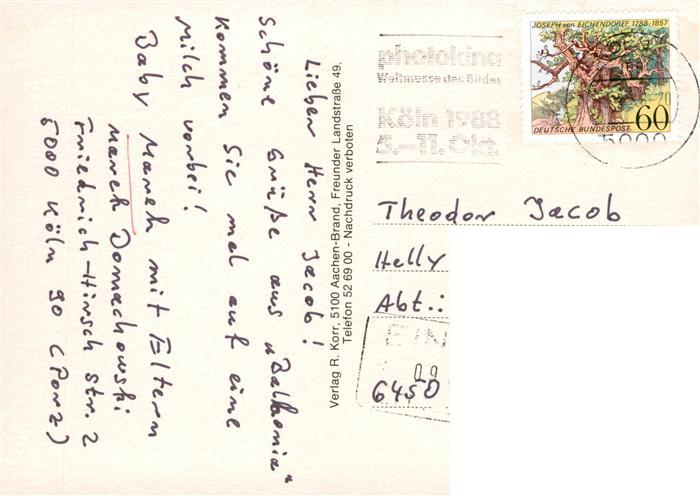 Lieber Herr Jacob!
Schöne Grüße aus "Balkonia"
Kommen Sie mal auf eine
Milch vorbei!
Baby Marek mit Eltern
Marek Domachowski
Friedrich-Hirsch Str. 2
5000 Köln 90 (Porz)
Verlag R. Korr, 5100 Aachen-Brand, Freunder Landstraße 49,
Telefon 52 69 00 - Nachdruck verboten
photokina
Weltmesse des Bildes
Köln 1988
5.-11. Okt.
JOSEPH von EICHENDORFF 1788-1857
60
DEUTSCHE BUNDESPOST
5000
Theodor Jacob
Helly
Abt.:
EIN
09
6450